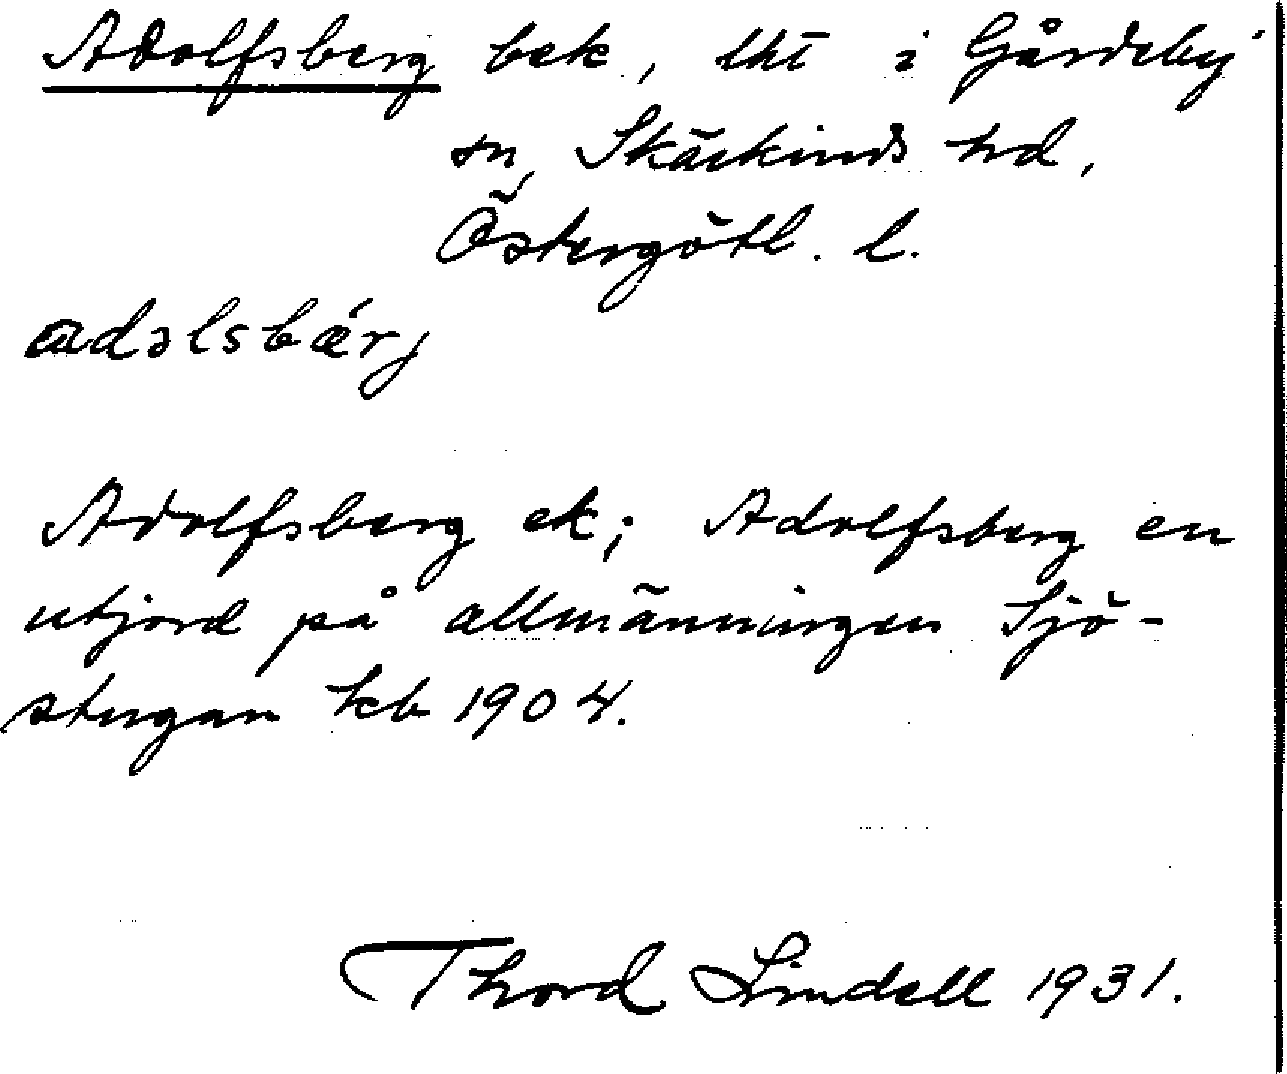 Adolfsberg bek, lht i Gårdeby
sn, Skärkinds hd.
Östergötl. l.
adəlsbærj
Adolfsberg ek; Adolfsberg en
utjord på allmänningen Sjö-
stugan kb 1904.
Thord Lindell 1931.